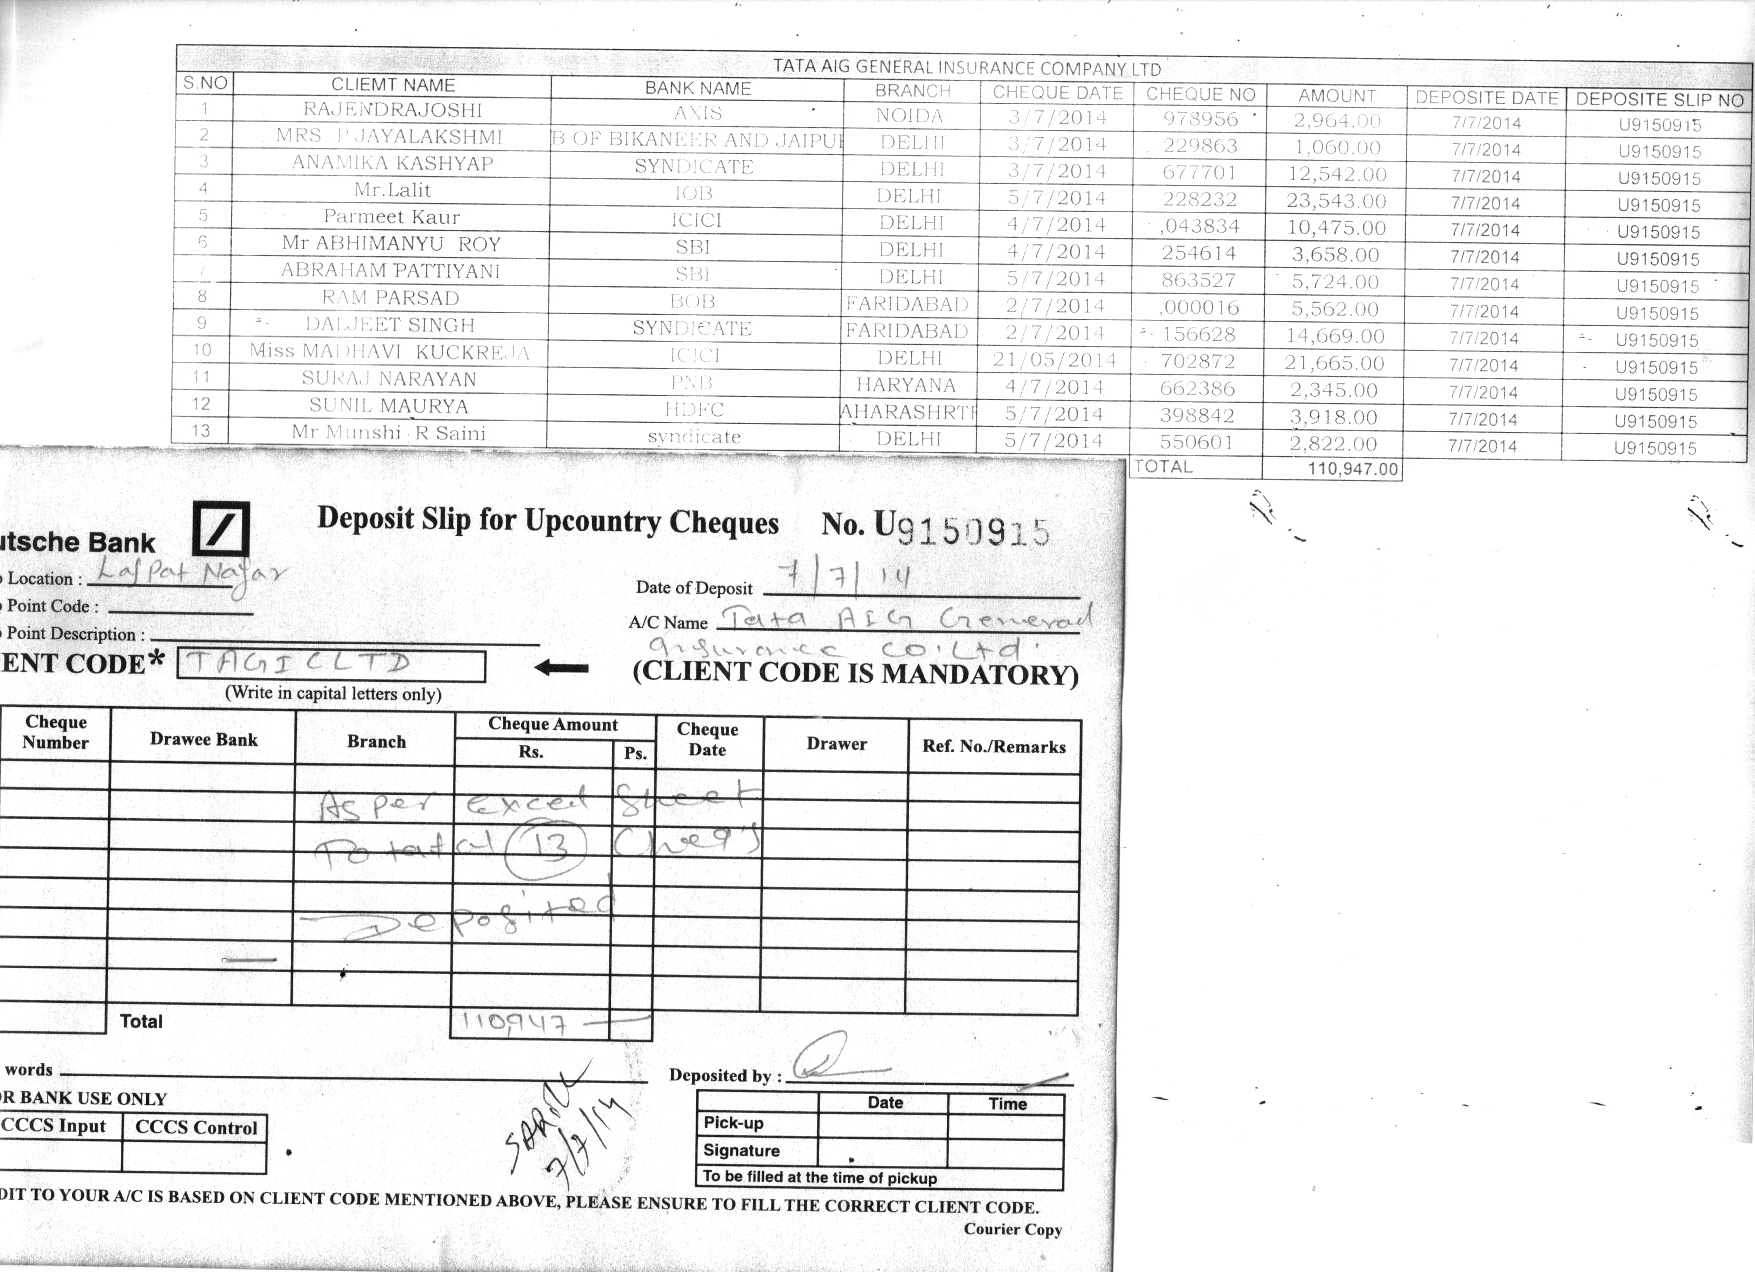 TATA AIG GENERAL INSURANCE COMPANY LTD
S.NO CLIEMT NAME BANK NAME BRANCH CHEQUE DATE CHEQUE NO AMOUNT DEPOSITE DATE DEPOSITE SLIP NO
1 RAJENDRAJOSHI AXIS NOIDA 3/7/2014 978956 2,964.00 7/7/2014 U9150915
2 MRS P JAYALAKSHMI B OF BIKANEER AND JAIPU DELHI 3/7/2014 229863 1,060.00 7/7/2014 U9150915
3 ANAMIKA KASHYAP SYNDICATE DELHI 3/7/2014 677701 12,542.00 7/7/2014 U9150915
4 Mr.Lalit IOB DELHI 5/7/2014 228232 23,543.00 7/7/2014 U9150915
5 Parmeet Kaur ICICI DELHI 4/7/2014 ,043834 10,475.00 7/7/2014 U9150915
6 Mr ABHIMANYU ROY SBI DELHI 4/7/2014 254614 3,658.00 7/7/2014 U9150915
7 ABRAHAM PATTIYANI SBI DELHI 5/7/2014 863527 5,724.00 7/7/2014 U9150915
8 RAM PARSAD BOB FARIDABAD 2/7/2014 ,000016 5,562.00 7/7/2014 U9150915
9 DALJEET SINGH SYNDICATE FARIDABAD 2/7/2014 156628 14,669.00 7/7/2014 U9150915
10 Miss MADHAVI KUCKREJA ICICI DELHI 21/05/2014 702872 21,665.00 7/7/2014 U9150915
11 SURAJ NARAYAN PNB HARYANA 4/7/2014 662386 2,345.00 7/7/2014 U9150915
12 SUNIL MAURYA HDFC AHARASHRT 5/7/2014 398842 3,918.00 7/7/2014 U9150915
13 Mr Munshi R Saini syndicate DELHI 5/7/2014 550601 2,822.00 7/7/2014 U9150915
TOTAL 110,947.00
Deposit Slip for Upcountry Cheques No. U9150915
utsche Bank
Location : Lajpat Nagar
Date of Deposit 7/7/14
Point Code :
A/C Name Tata AIG General
Point Description :
Insurance Co. Ltd.
ENT CODE* TAGICLTD
(CLIENT CODE IS MANDATORY)
(Write in capital letters only)
Cheque Number Drawee Bank Branch Cheque Amount Rs. Ps. Cheque Date Drawer Ref. No./Remarks
As per Excel Sheet
Totatal 13 Cheq's
Deposited
Total 110,947
words
Deposited by :
OR BANK USE ONLY
CCCS Input CCCS Control
7/7/14
Date Time
Pick-up
Signature
To be filled at the time of pickup
DIT TO YOUR A/C IS BASED ON CLIENT CODE MENTIONED ABOVE, PLEASE ENSURE TO FILL THE CORRECT CLIENT CODE.
Courier Copy